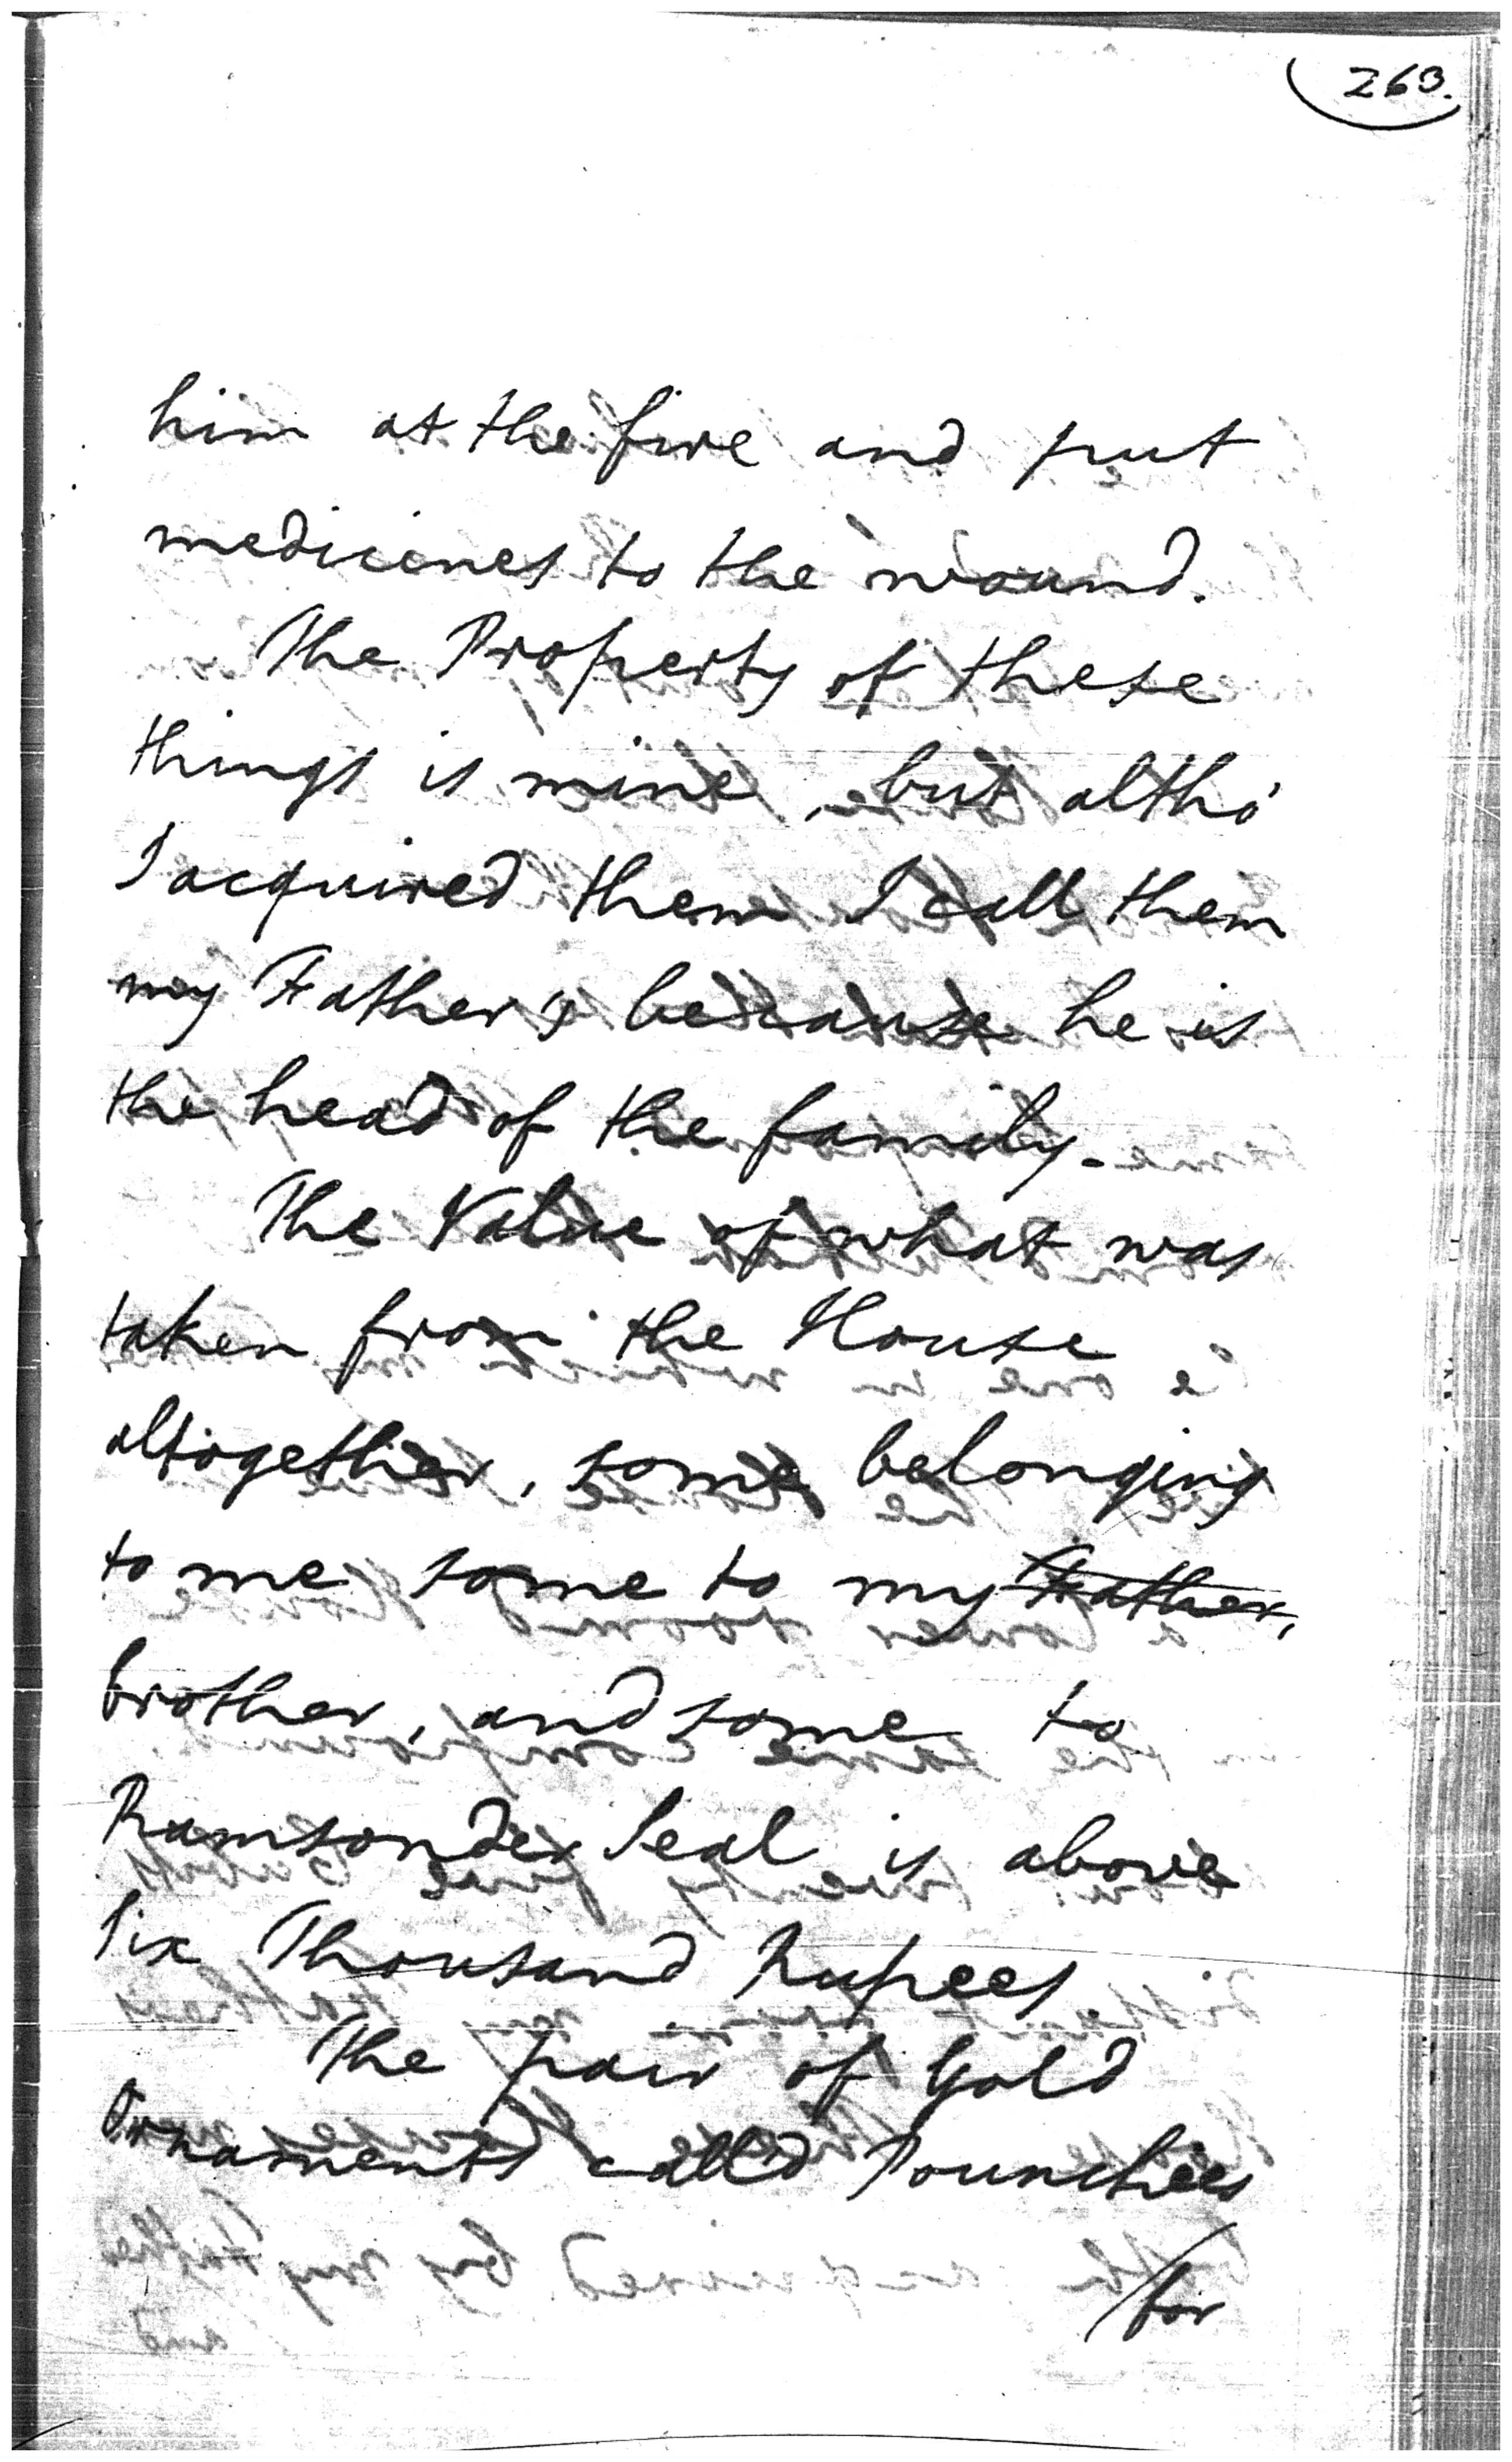 263.
him at the fire and put
medicines to the wound.
The Property of these
things is mine, but altho'
I acquired them I call them
my Father's because he is
the head of the family.
The Value of what was
taken from the House
altogether, some belonging
to me some to my Father,
brother, and some to
Ramsonder Seal is above
Six Thousand Rupees.
The pair of Gold
Ornaments call'd Pounchees
/for